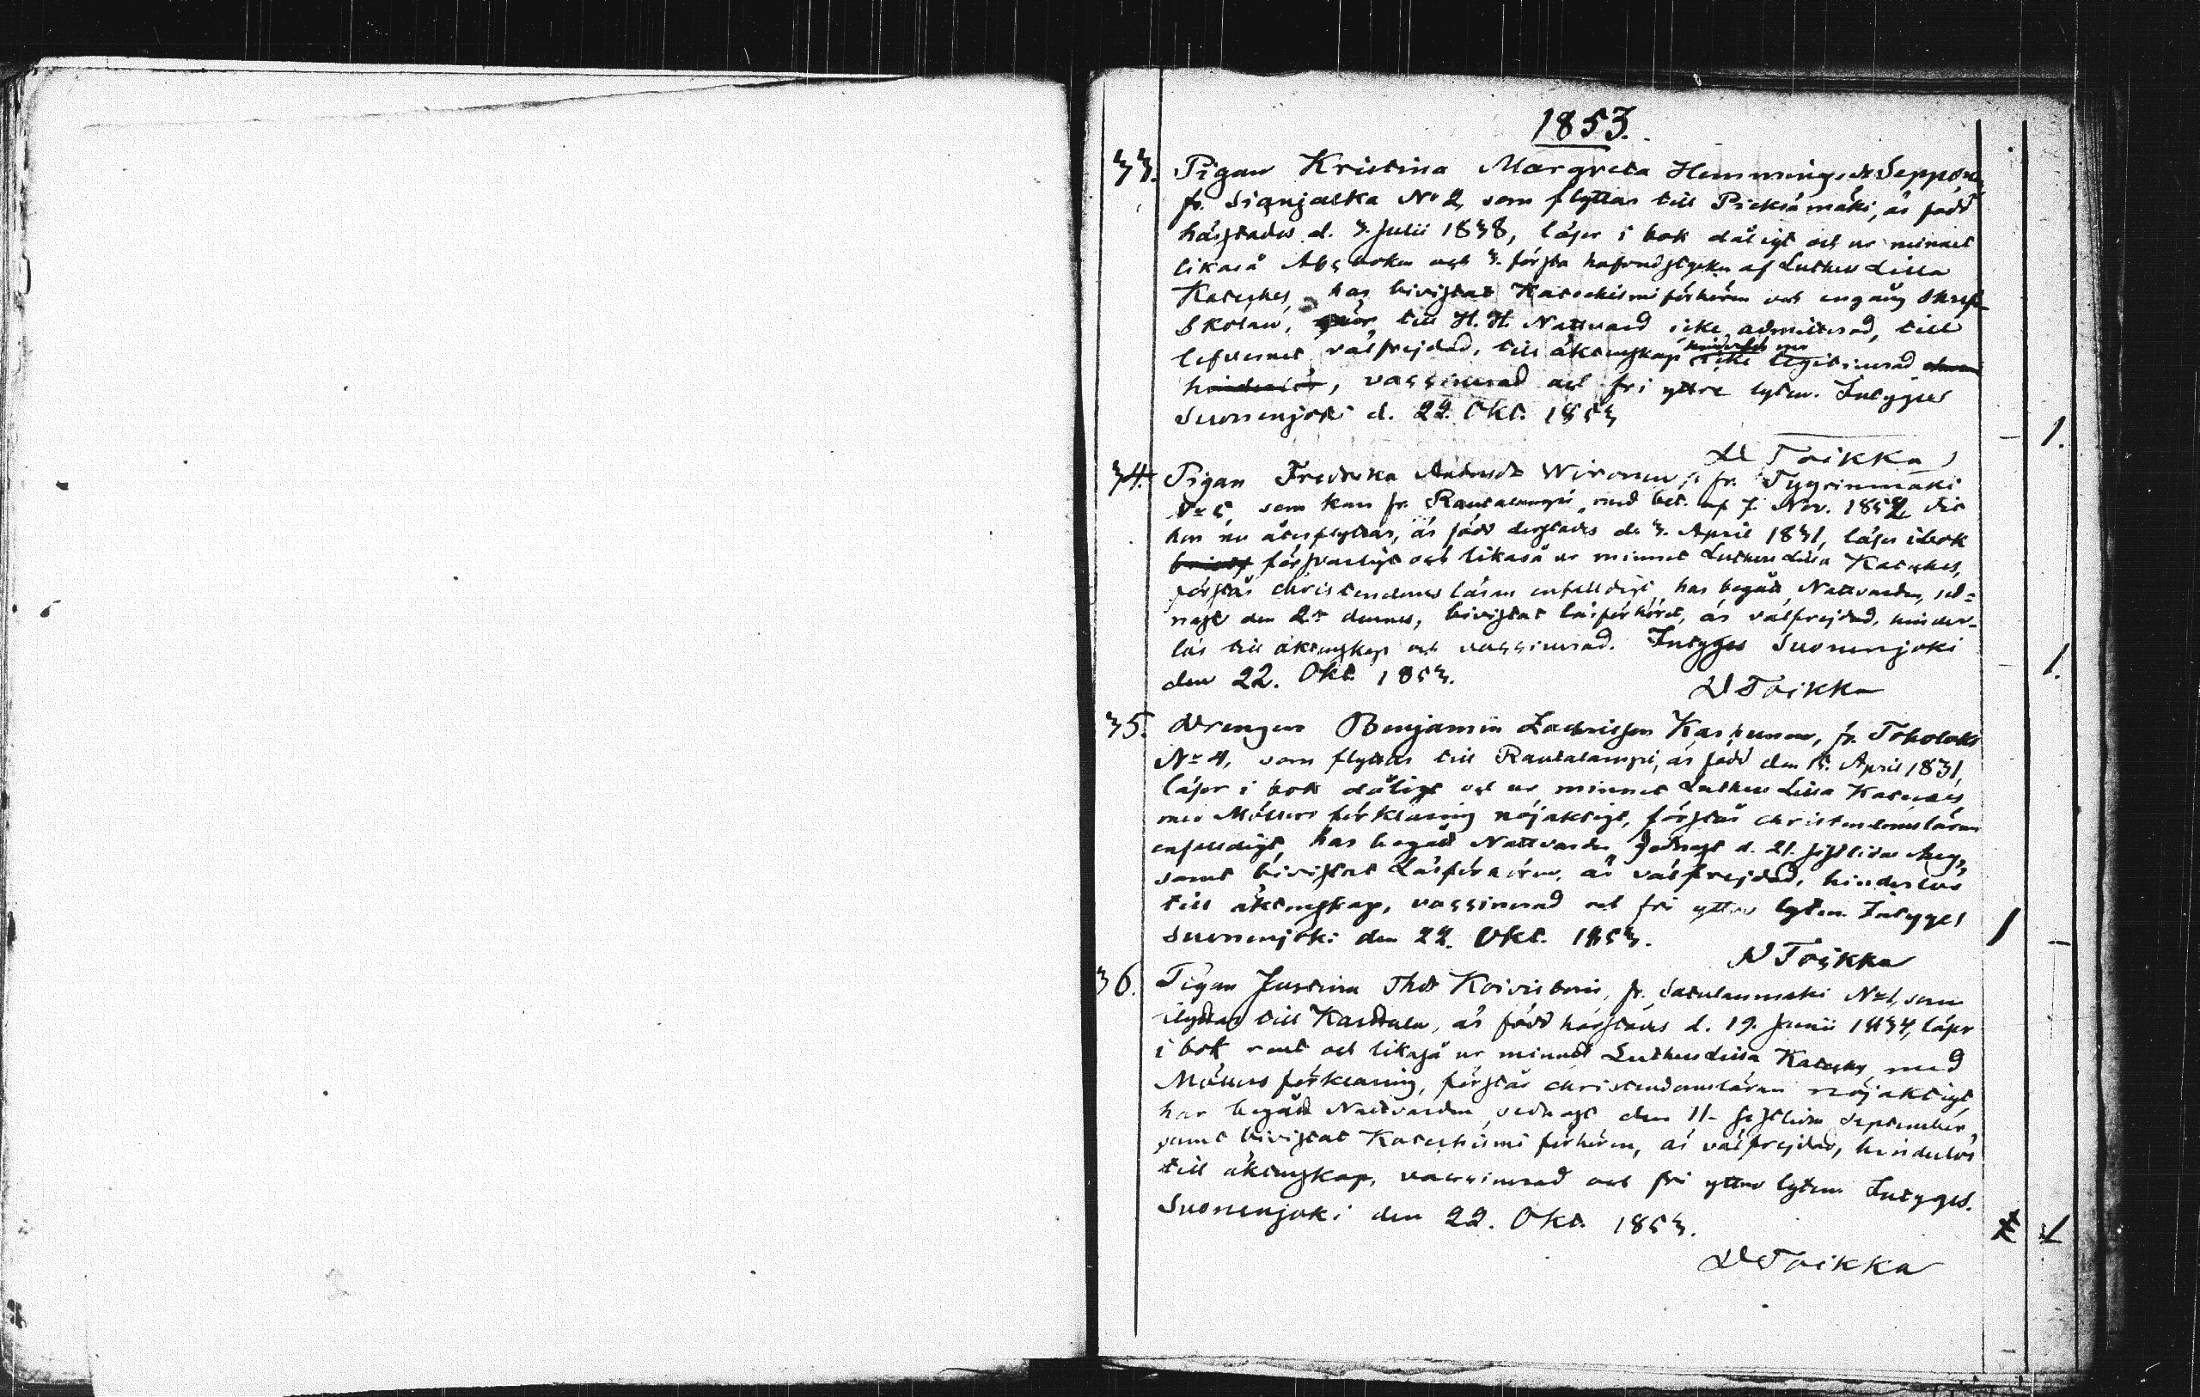 1853.
33. Pigan Kristina Margreta Hemmings dr Seppönen
fr. Sianjalka No 2, som flyttar till Pieksämäki, är född
härstädes d. 3. Julii 1838, läser i bok dåligt och ur minnet
likaså Abcboken och 3. första hufvudstycken af Luthers Lilla
Kateches, har bivistat Katechismiförhören och engång Skrift-
Skolan, till H. H. Nattvard icke admitterad, till
lefvernet välfrejdad, till äktenskap icke legitimerad
, vaccinerad och fri yttre lyten. Intygas
Suonenjoki d. 22. Okt. 1853
D Toikka
1.
34. Pigan Fredrika Andersdr Wironen, fr. Tyyrinmäki
No 5, som kom fr. Rautalampi med bet. af 7 Nov. 1852, dit
hon nu återflyttar, är född derstädes d. 3. April 1831, läser i bok
försvarligt och likaså ur minnet Luthers Lilla Kateches,
förstår christendomsläran enfaldigt, har begått Nattvarden, sed-
nast den 2 dennes, bivistat läsförhöret, är välfrejdad, hinder-
lös till äktenskap och vaccinerad. Intygas Suonenjoki
den 22. Okt. 1853.
D Toikka
1.
35. Drengen Benjamin Zachrisson Karhunen, fr. Toholaks
No 4, som flyttar till Rautalampi, är född den 15. April 1831,
läser i bok dåligt och ur minnet Luthers Lilla Kateches
med Möllers förklaring nöjaktigt, förstår christendomsläran
enfaldigt, har begått Nattvarden sednast d. 21. sistlidne Aug.,
samt bivistat Läsförhören, är välfrejdad, hinderlös
till äktenskap, vaccinerad och fri yttre lyten. Intygas
Suonenjoki den 22. Okt. 1853.
D Toikka
1 –
36. Pigan Justina Thdr Koivistoin, fr. Satulanmäki No 1, som
flyttar till Karttula, är född härstädes d. 19. Junii 1834, läser
i bok rent och likaså ur minnet Luthers Lilla Kateches med
Möllers förklaring, förstår christendomsläran nöjaktigt,
har begått Nattvarden sednast den 11. sistlidne September,
samt bivistat Katechismi förhören, är välfrejdad, hinderlös
till äktenskap, vaccinerad och fri yttre lyten. Intygas.
Suonenjoki den 22. Okt. 1853.
1
D Toikka